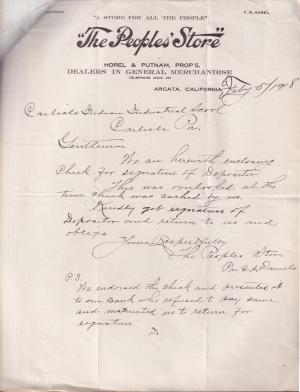 "A STORE FOR ALL THE PEOPLE"
F. R. HOREL
"The Peoples' Store"
HOREL & PUTNAM, PROP'S,
DEALERS IN GENERAL MERCHANDISE
TELEPHONE MAIN
ARCATA, CALIFORNIA, Feby 5/1918
Carlisle Indian Industrial School
Carlisle Pa.
Gentlemen
We are herewith enclosing
Check for signature of Depositor
This was overlooked at the
time check was cashed by us.
Kindly get signature of
Depositor and return to us and
oblige
Yours Respectfully
The Peoples Store
Per Daniels
P.S.
We endorsed the check and presented it
to our bank who refused to pay same
and instructed us to return for
signature
D.